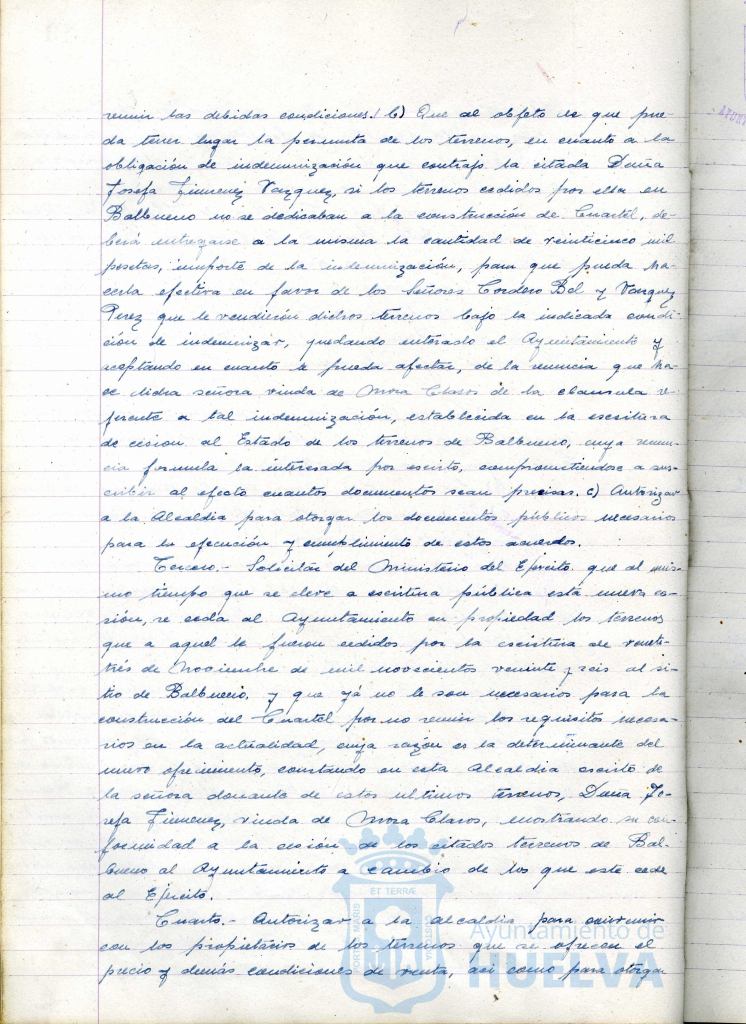 reunir las debidas condiciones. b) Que al objeto de que pue-
da tener lugar la permuta de los terrenos, en cuanto a la
obligación de indemnización que contrajo la citada Doña
Josefa Jimenez Vazquez, si los terrenos cedidos por ella en
Balbueno no se dedicaban a la construcción de Cuartel, de-
berá entregarse a la misma la cantidad de veinticinco mil
pesetas, importe de la indemnización, para que pueda ha-
cerla efectiva en favor de los Señores Cordero Bel y Vazquez
Perez que le vendieron dichos terrenos bajo la indicada condi-
ción de indemnizar, quedando enterado el Ayuntamiento y
aceptando en cuanto le pueda afectar, de la renuncia que ha-
ce dicha señora viuda de Mora Claros de la clausula re-
ferente a tal indemnización, establecida en la escritura
de cesion al Estado de los terrenos de Balbueno, cuya renun-
cia formula la interesada por escrito, comprometiendose a sus-
cribir al efecto cuantos documentos sean precisos. c) Autorizar
a la Alcaldia para otorgar los documentos públicos necesarios
para la ejecución y cumplimiento de estos acuerdos.
Tercero.- Solicitar del Ministerio del Ejercito que al mis-
mo tiempo que se eleve a escritura pública esta nueva ce-
sión, se ceda al Ayuntamiento en propiedad los terrenos
que a aquel le fueron cedidos por la escritura de veinti-
trés de Noviembre de mil novecientos veinte y seis al si-
tio de Balbueno, y que yá no le son necesarios para la
construcción del Cuartel por no reunir los requisitos necesa-
rios en la actualidad, cuya razón es la determinante del
nuevo ofrecimiento, constando en esta Alcaldia escrito de
la señora donante de estos ultimos terrenos, Doña Jo-
sefa Jimenez, viuda de Mora Claros, mostrando su con-
formidad a la cesión de los citados terrenos de Bal-
bueno al Ayuntamiento a cambio de los que este cede
al Ejército.
Cuarto.- Autorizar a la alcaldia para convenir
con los propietarios de los terrenos que se ofrecen el
precio y demás condiciones de venta, asi como para otorgar
PORTUS MARIS ET TERRAE CUSTODIA
Ayuntamiento de
HUELVA